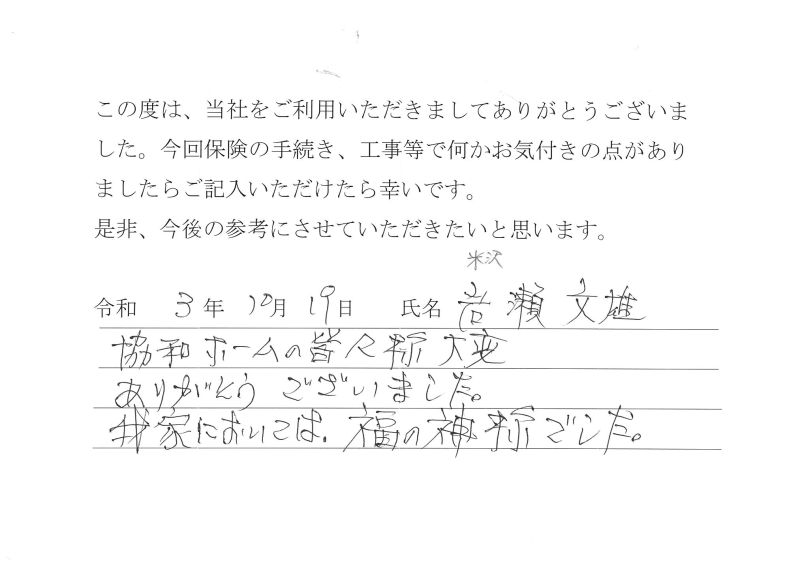 この度は、当社をご利用いただきましてありがとうございま
した。今回保険の手続き、工事等で何かお気付きの点があり
ましたらご記入いただけたら幸いです。
是非、今後の参考にさせていただきたいと思います。
米沢
令和 3年 10月 19日 氏名 岩瀬 文雄
協和ホームの皆々様 大変
ありがとう ございました。
我家においては、福の神様でした。